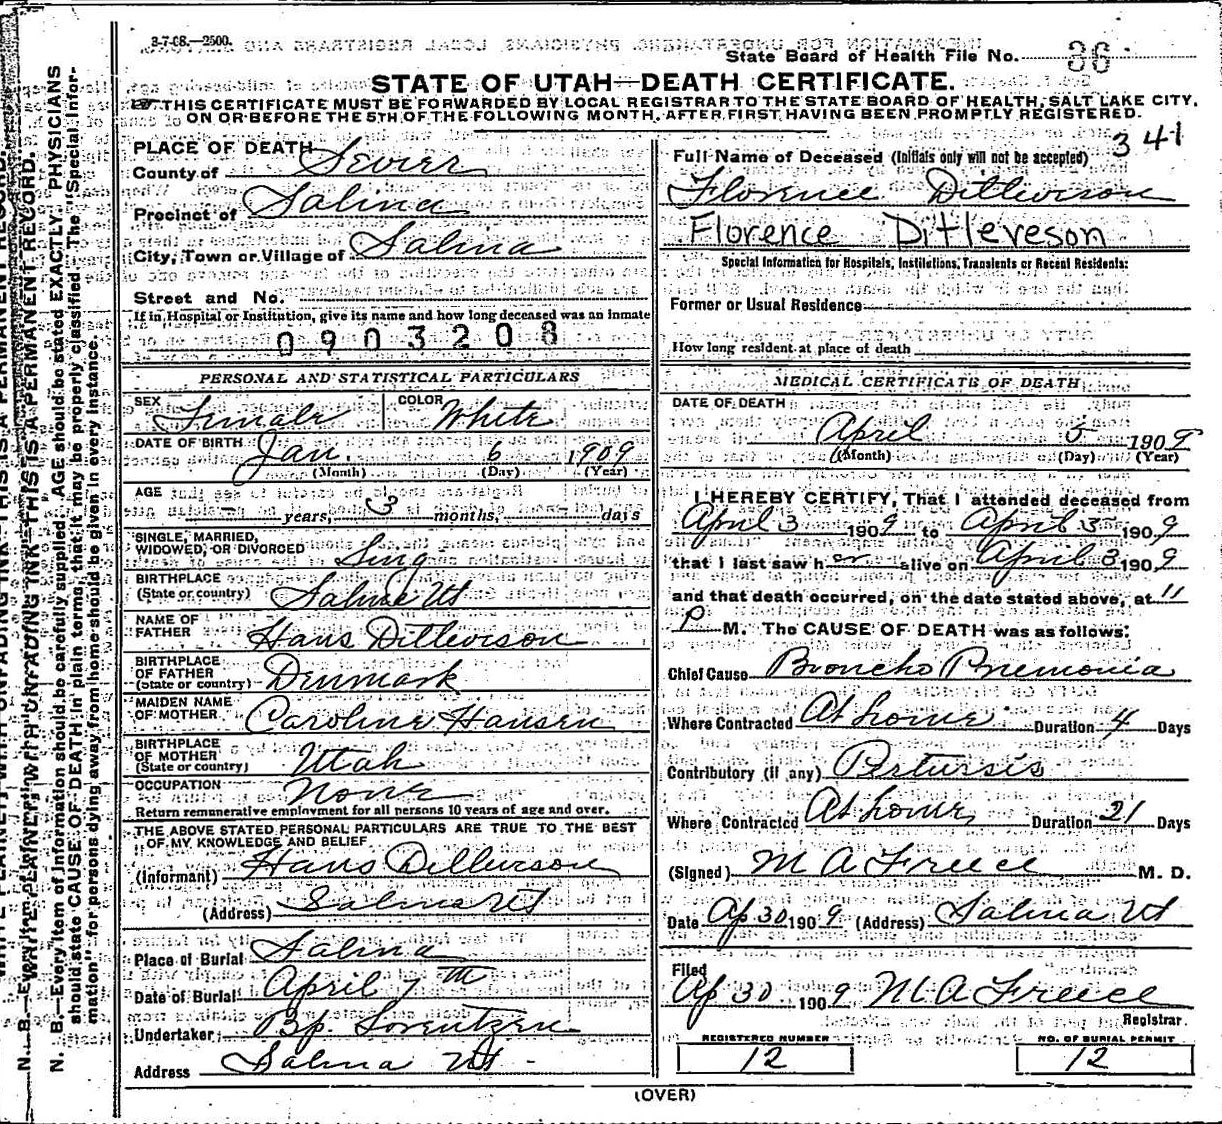 3-7-08.—2500.
State Board of Health File No. 36
STATE OF UTAH—DEATH CERTIFICATE.
THIS CERTIFICATE MUST BE FORWARDED BY LOCAL REGISTRAR TO THE STATE BOARD OF HEALTH, SALT LAKE CITY,
ON OR BEFORE THE 5TH OF THE FOLLOWING MONTH, AFTER FIRST HAVING BEEN PROMPTLY REGISTERED.
PLACE OF DEATH
County of Sevier
Precinct of Salina
City, Town or Village of Salina
Street and No.
If in Hospital or Institution, give its name and how long deceased was an inmate
0903208
PERSONAL AND STATISTICAL PARTICULARS
SEX Female COLOR White
DATE OF BIRTH Jan. 6 1909
(Month) (Day) (Year)
AGE
years, 3 months, days
SINGLE, MARRIED,
WIDOWED, OR DIVORCED Sing
BIRTHPLACE
(State or country) Salina Ut
NAME OF
FATHER Hans Ditleveson
BIRTHPLACE
OF FATHER
(State or country) Denmark
MAIDEN NAME
OF MOTHER Caroline Hansen
BIRTHPLACE
OF MOTHER
(State or country) Utah
OCCUPATION None
Return remunerative employment for all persons 10 years of age and over.
THE ABOVE STATED PERSONAL PARTICULARS ARE TRUE TO THE BEST
OF MY KNOWLEDGE AND BELIEF
(Informant) Hans Ditleveson
(Address) Salina Ut
Place of Burial Salina
Date of Burial April 7th
Undertaker Bp. Lorentzen
Address Salina Ut
341
Full Name of Deceased (Initials only will not be accepted)
Florence Ditleveson
Florence Ditleveson
Special Information for Hospitals, Institutions, Transients or Recent Residents:
Former or Usual Residence
How long resident at place of death
MEDICAL CERTIFICATE OF DEATH
DATE OF DEATH
April 5 1909
(Month) (Day) (Year)
I HEREBY CERTIFY, That I attended deceased from
April 3 1909 to April 3 1909
that I last saw h er alive on April 3 1909
and that death occurred, on the date stated above, at 11
P M. The CAUSE OF DEATH was as follows:
Chief Cause Broncho Pnemonia
Where Contracted At home Duration 4 Days
Contributory (if any) Pertursis
Where Contracted At home, Duration 21 Days
(Signed) M A Freece M. D.
Date Ap 30 1909 (Address) Salina Ut
Filed
Ap 30 1909 M A Freece
Registrar
REGISTERED NUMBER
12
NO. OF BURIAL PERMIT
12
(OVER)
N. B.—Every item of information should be carefully supplied. AGE should be stated EXACTLY. PHYSICIANS
should state CAUSE OF DEATH in plain terms, that it may be properly classified. The "Special Infor-
mation" for persons dying away from home should be given in every instance.